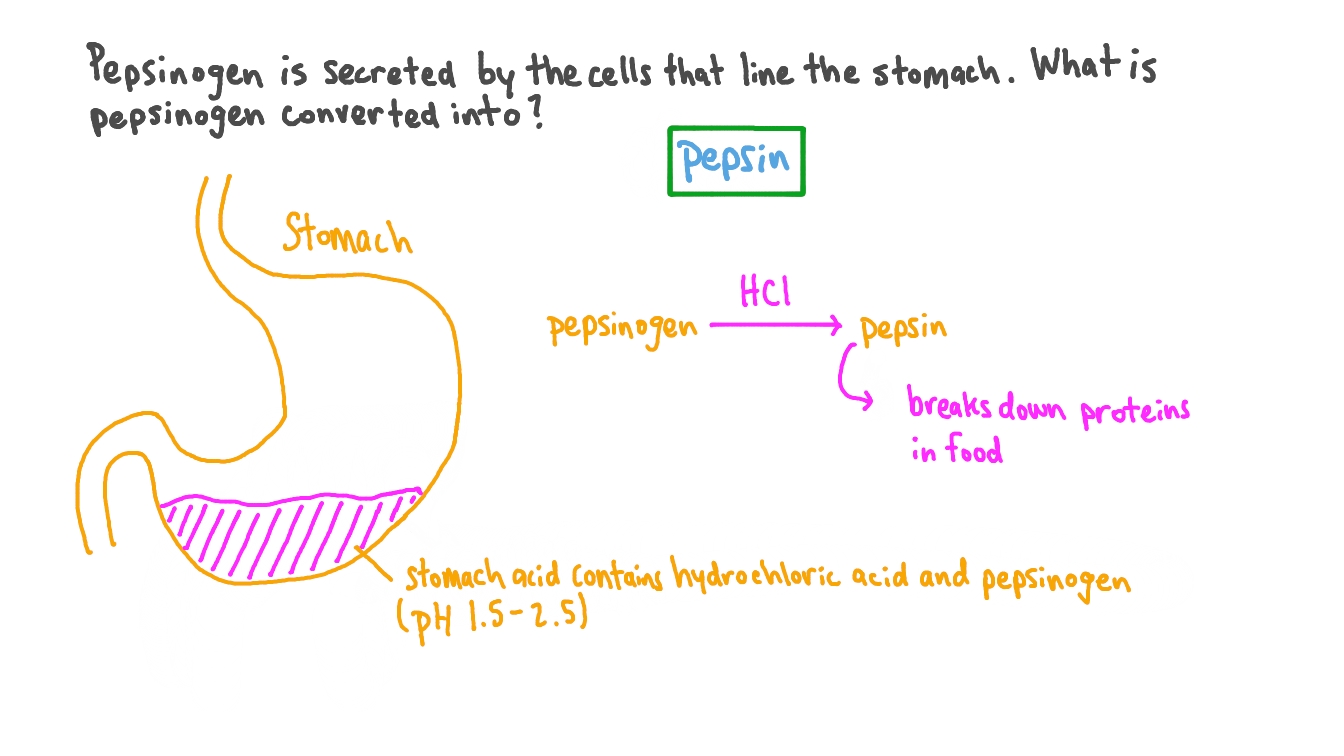 Pepsinogen is secreted by the cells that line the stomach. What is
pepsinogen converted into?
pepsin
Stomach
HCl
pepsinogen → pepsin
breaks down proteins
in food
stomach acid contains hydrochloric acid and pepsinogen
(pH 1.5-2.5)